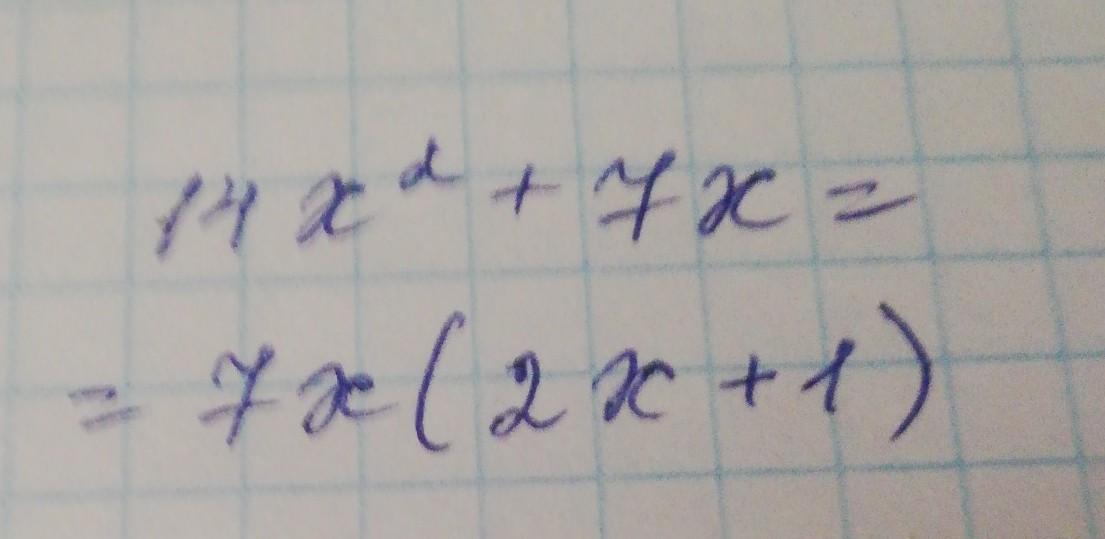 14x² + 7x =
= 7x(2x + 1)